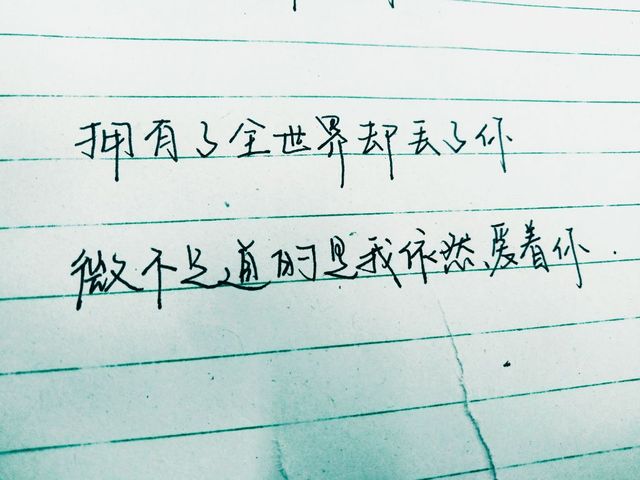 拥有了全世界却丢了你
微不足道的是我依然爱着你.